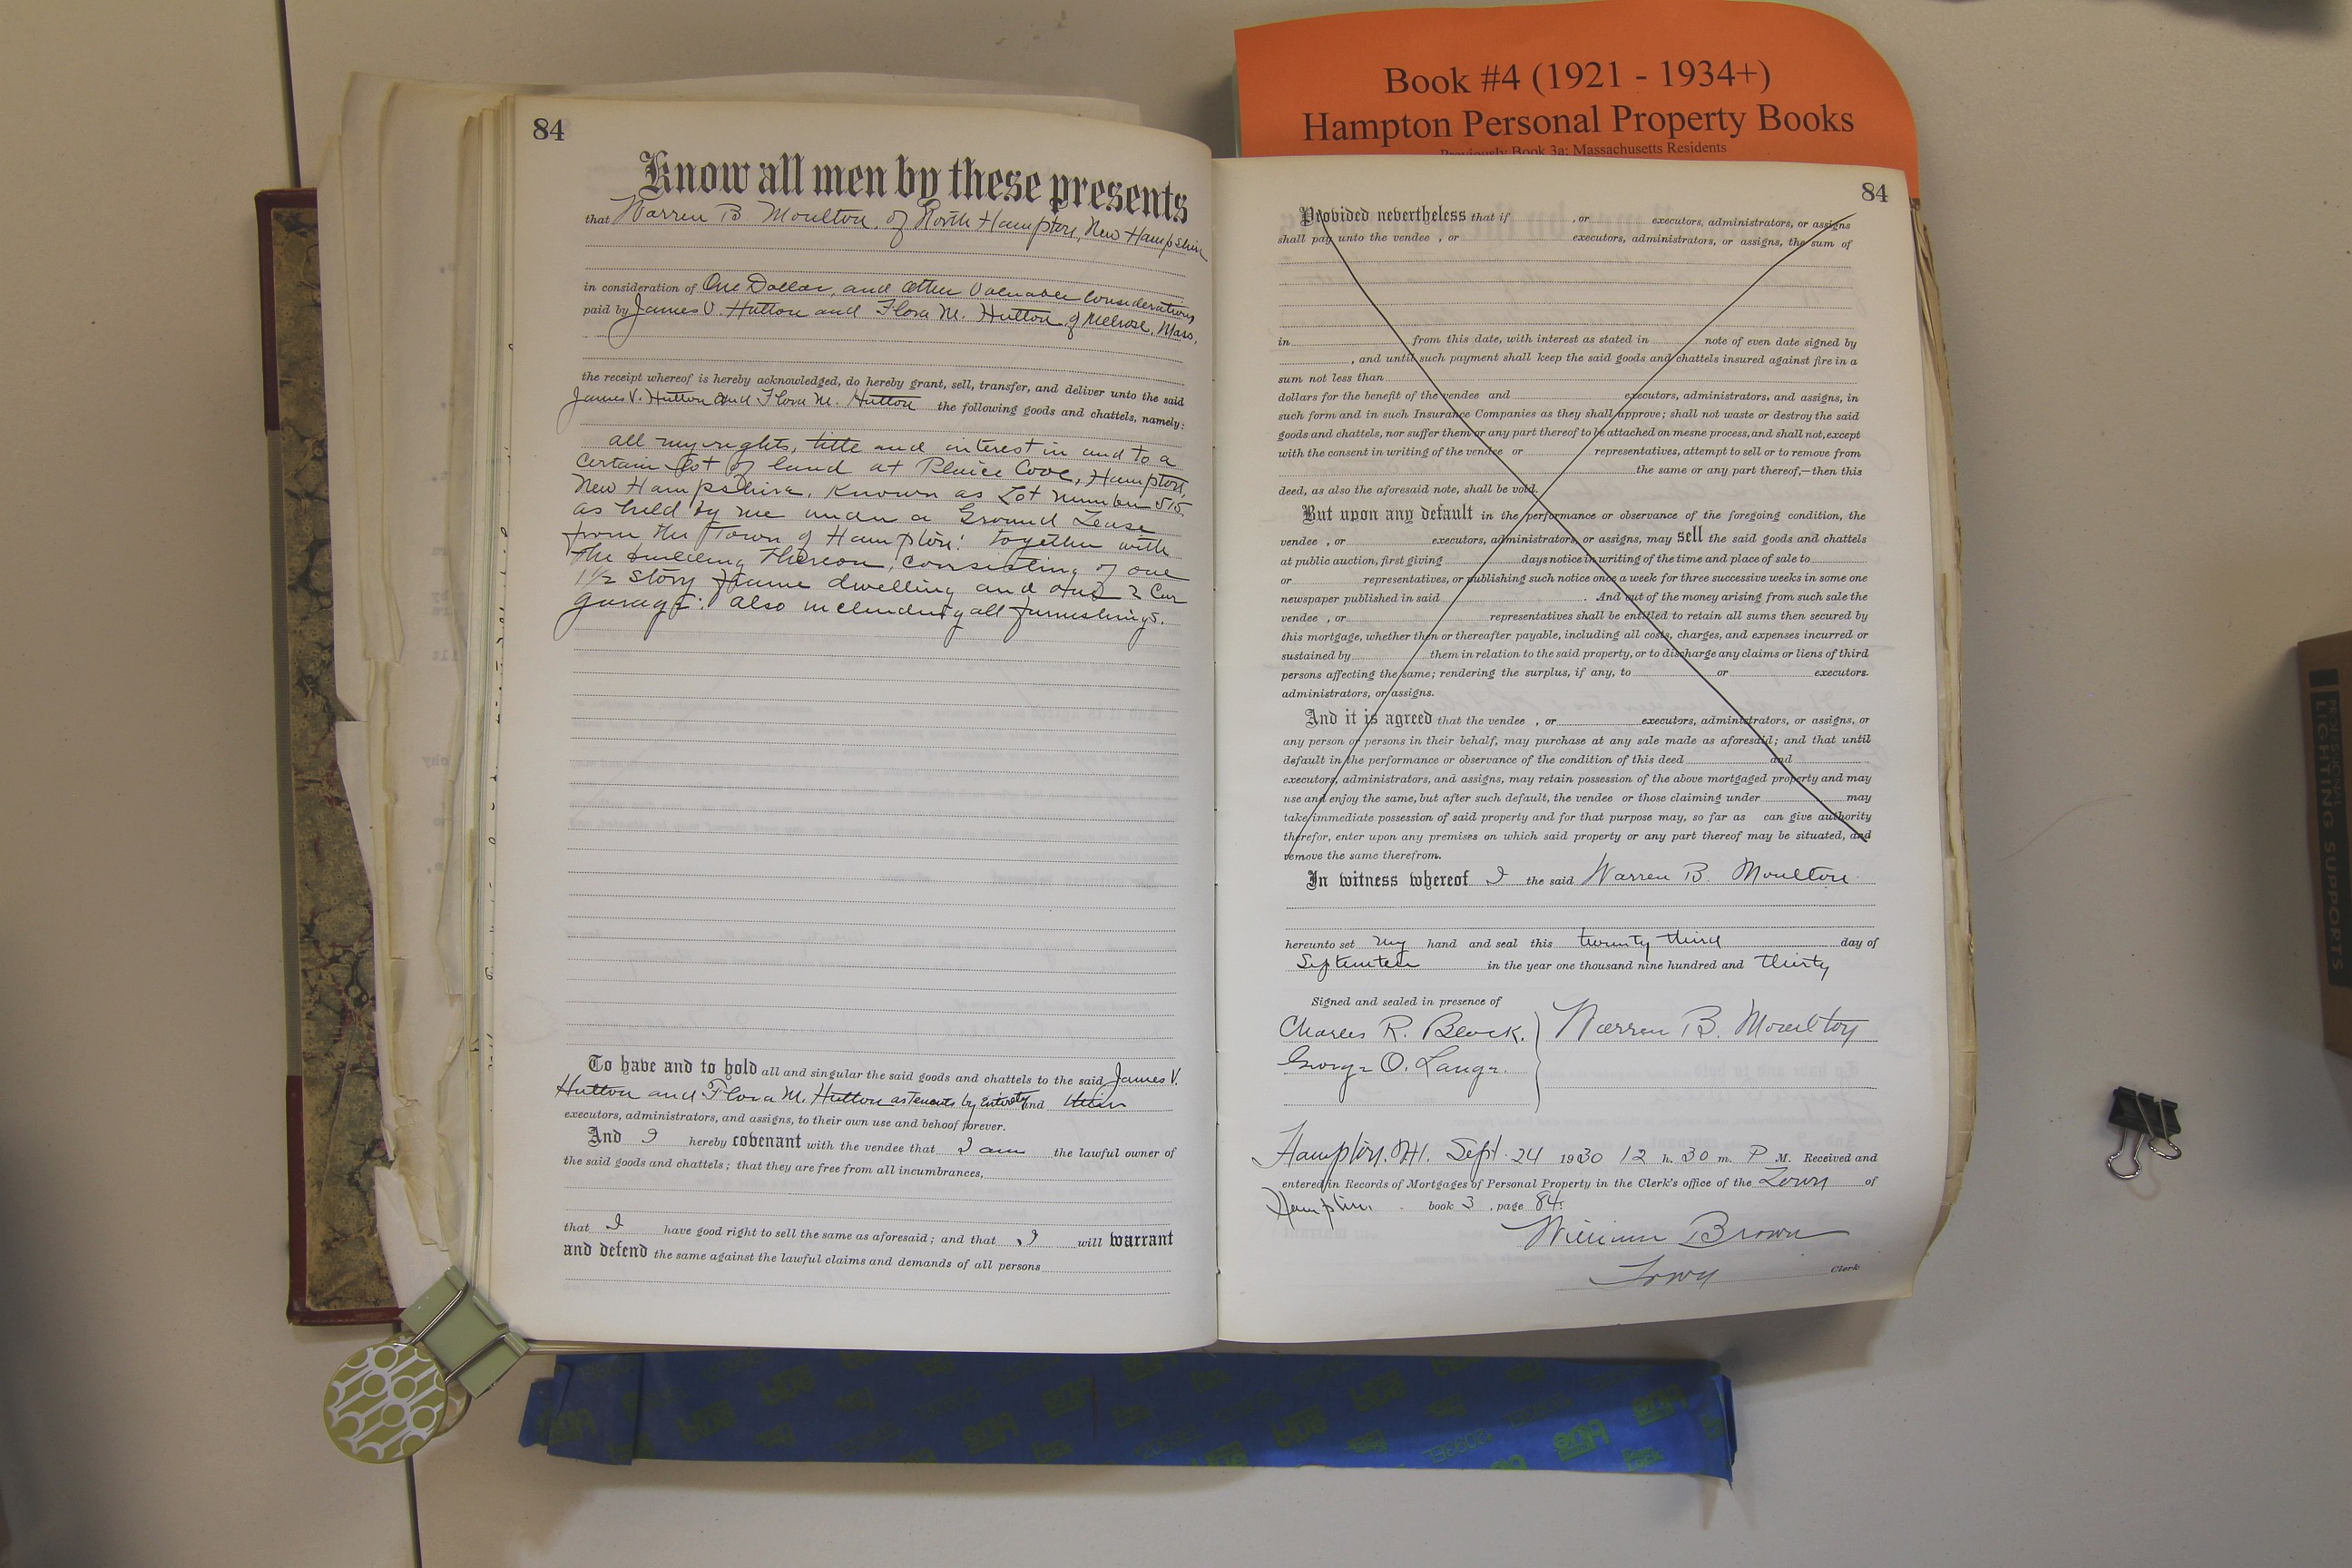 Book #4 (1921 - 1934+)
Hampton Personal Property Books
Previously Book 3a: Massachusetts Residents
84
Know all men by these presents
that Warren B. Moulton, of North Hampton, New Hampshire
in consideration of One Dollar, and other Valuable Considerations
paid by James V. Hutton and Flora M. Hutton of Melrose, Mass.
the receipt whereof is hereby acknowledged, do hereby grant, sell, transfer, and deliver unto the said
James V. Hutton and Flora M. Hutton the following goods and chattels, namely:
all my rights, title and interest in and to a
certain lot of land at Plaice Cove, Hampton,
New Hampshire, known as Lot number 515
as held by me under a Ground Lease
from the Town of Hampton: together with
the building thereon, consisting of one
1 1/2 story frame dwelling and one 2 Car
garage: also including all furnishings.
To have and to hold all and singular the said goods and chattels to the said James V.
Hutton and Flora M. Hutton as tenants by entirety and their
executors, administrators, and assigns, to their own use and behoof forever.
And I hereby covenant with the vendee that I am the lawful owner of
the said goods and chattels; that they are free from all incumbrances,
that I have good right to sell the same as aforesaid; and that I will warrant
and defend the same against the lawful claims and demands of all persons
84
Provided nevertheless that if , or executors, administrators, or assigns
shall pay unto the vendee , or executors, administrators, or assigns, the sum of
in from this date, with interest as stated in note of even date signed by
, and until such payment shall keep the said goods and chattels insured against fire in a
sum not less than
dollars for the benefit of the vendee and executors, administrators, and assigns, in
such form and in such Insurance Companies as they shall approve; shall not waste or destroy the said
goods and chattels, nor suffer them or any part thereof to be attached on mesne process, and shall not, except
with the consent in writing of the vendee or representatives, attempt to sell or to remove from
the same or any part thereof,—then this
deed, as also the aforesaid note, shall be void.
But upon any default in the performance or observance of the foregoing condition, the
vendee , or executors, administrators, or assigns, may sell the said goods and chattels
at public auction, first giving days notice in writing of the time and place of sale to
or representatives, or publishing such notice once a week for three successive weeks in some one
newspaper published in said . And out of the money arising from such sale the
vendee , or representatives shall be entitled to retain all sums then secured by
this mortgage, whether then or thereafter payable, including all costs, charges, and expenses incurred or
sustained by them in relation to the said property, or to discharge any claims or liens of third
persons affecting the same; rendering the surplus, if any, to or executors.
administrators, or assigns.
And it is agreed that the vendee , or executors, administrators, or assigns, or
any person or persons in their behalf, may purchase at any sale made as aforesaid; and that until
default in the performance or observance of the condition of this deed and
executors, administrators, and assigns, may retain possession of the above mortgaged property and may
use and enjoy the same, but after such default, the vendee or those claiming under may
take immediate possession of said property and for that purpose may, so far as can give authority
therefor, enter upon any premises on which said property or any part thereof may be situated, and
remove the same therefrom.
In witness whereof I the said Warren B. Moulton
hereunto set my hand and seal this twenty third day of
September in the year one thousand nine hundred and thirty
Signed and sealed in presence of
Charles R. Bevck. Warren B. Moulton
George O. Lange.
Hampton. NH. Sept. 24 1930 12 h. 30 m. P M. Received and
entered in Records of Mortgages of Personal Property in the Clerk's office of the Town of
Hampton. book 3 , page 84.
William Brown
Town Clerk
LIGHTING SUPPORTS